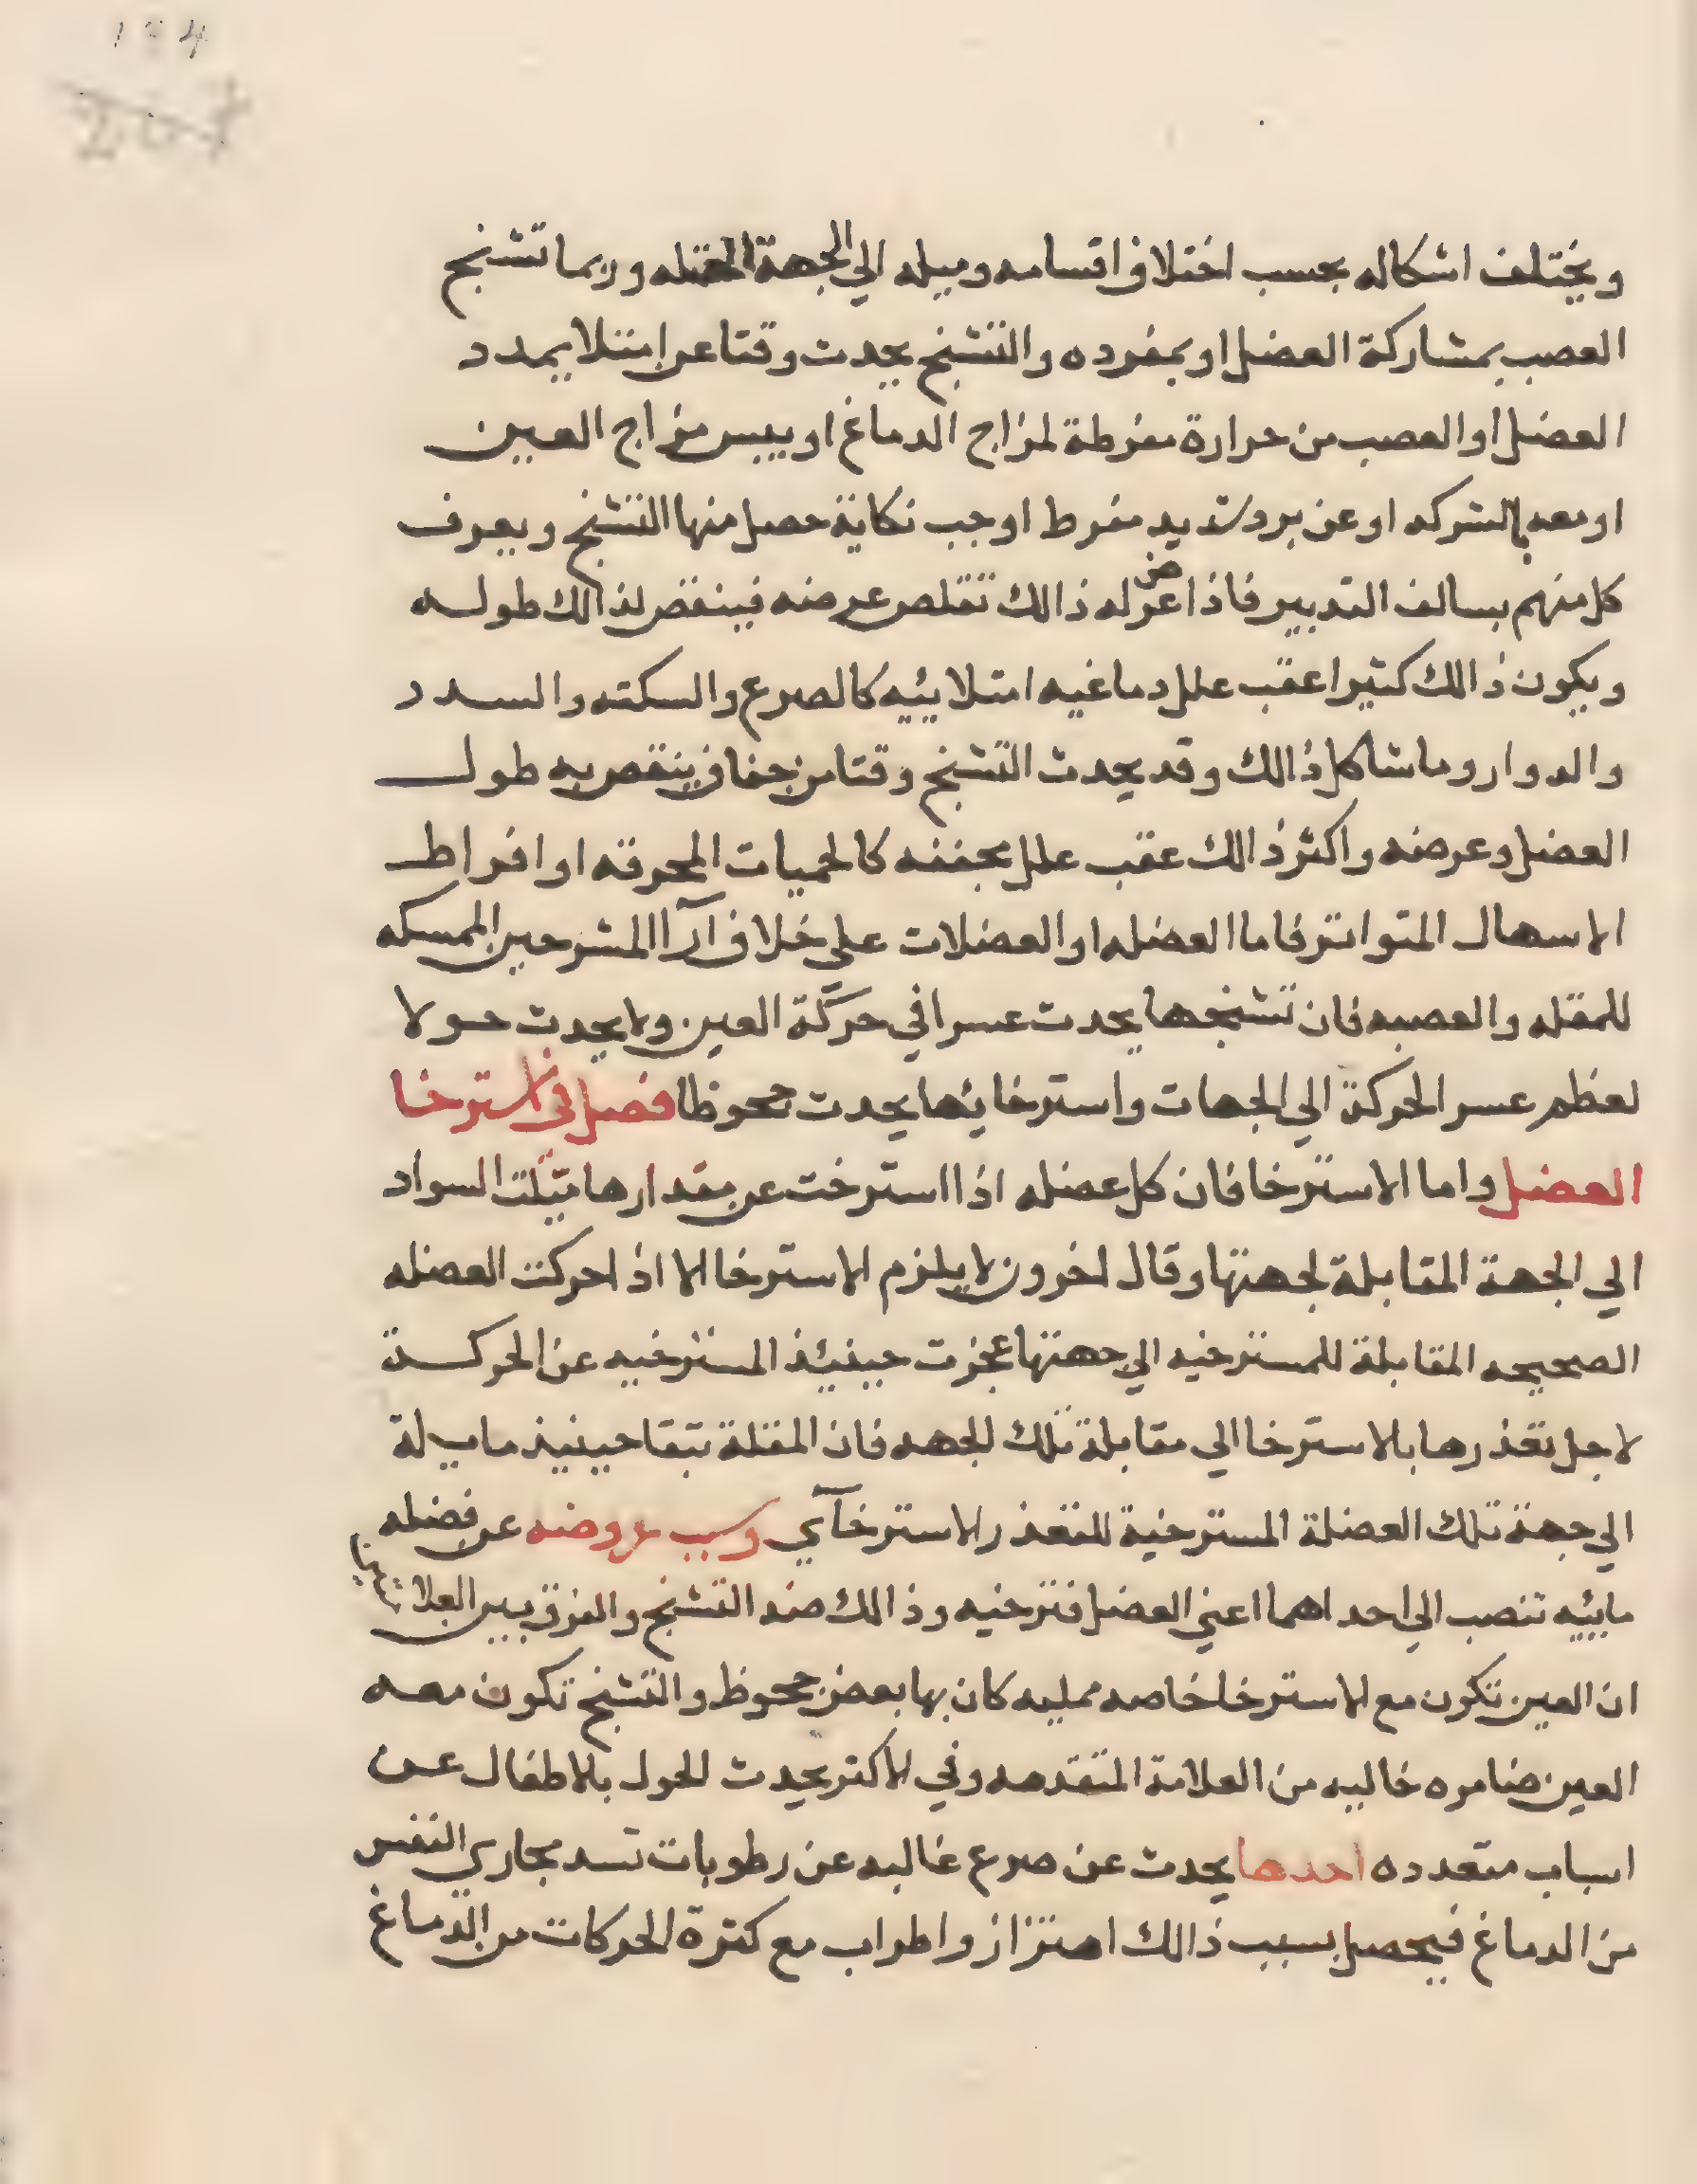 184
ويختلف اشكاله بحسب اختلاف اقسامه وميله الي الجهة المقتله وربما تشنج
العصب بمشاركة العضل او بمفرده والتشنج يحدث وقتا عن امتلا يمدد
العضل او العصب من حرارة مفرطة لمزاج الدماغ او يبس مزاج العين
او معه بالشركه او عن برد شديد مفرط اوجب نكاية حصل منها التشنج ويعرف
كل منهم بسالف التدبير فاذا عرض له ذالك تقلص عرضه فينقص لذالك طوله
ويكون ذالك كثيرا عقب علل دماغيه امتلاييه كالصرع والسكته والسدد
والدوار وما شاكل ذالك وقد يحدث التشنج وقتا من جفاف ينقص به طول
العضل وعرضه واكثر ذالك عقب علل مجففه كالحميات المحرقه او افراط
الاسهال المتواتر فاما العضله او العضلات علي خلاف آرا المشرحين الممسكه
للمقله والعصبه فان تشنجها يحدت عسرا في حركة العين ولا يحدت حولا
لعظم عسر الحركة الي الجهات واسترخايها يحدت جحوظا فصل في استرخا
العضل واما الاسترخا فان كل عضله اذا استرخت عن مقدارها ميّلت السواد
الي الجهة المقابلة لجهتها وقال اخرون لا يلزم الاسترخا الا اذا حركت العضله
الصحيحه المقابلة للمسترخيه الي جهتها عجزت حينيئذ المسترخيه عن الحركة
لاجل تعذرها بالاسترخا الي مقابلة تلك الجهه فان المقلة تبقا حينيذ مايلة
الي جهة تلك العضلة المسترخية للتعذر الاسترخآي وسبب عروضه عن فضله
ماييه تنصب الي احداهما اعني العضل فترخيه وذالك ضد التشنج والفرق بين العلامتين
ان العين تكون مع الاسترخا خاصه ممليه كان بها بعض جحوظ والتشنج تكون معه
العين ضامره خاليه من العلامة المتقدمه وفي الاكثر يحدث الحول بالاطفال عن
اسباب متعدده احدها يحدث عن صرع غالبه عن رطوبات تسد مجاري النفس
من الدماغ فيحصل بسبب ذالك اهتزاز واطراب مع كثرة الحركات من الدماغ